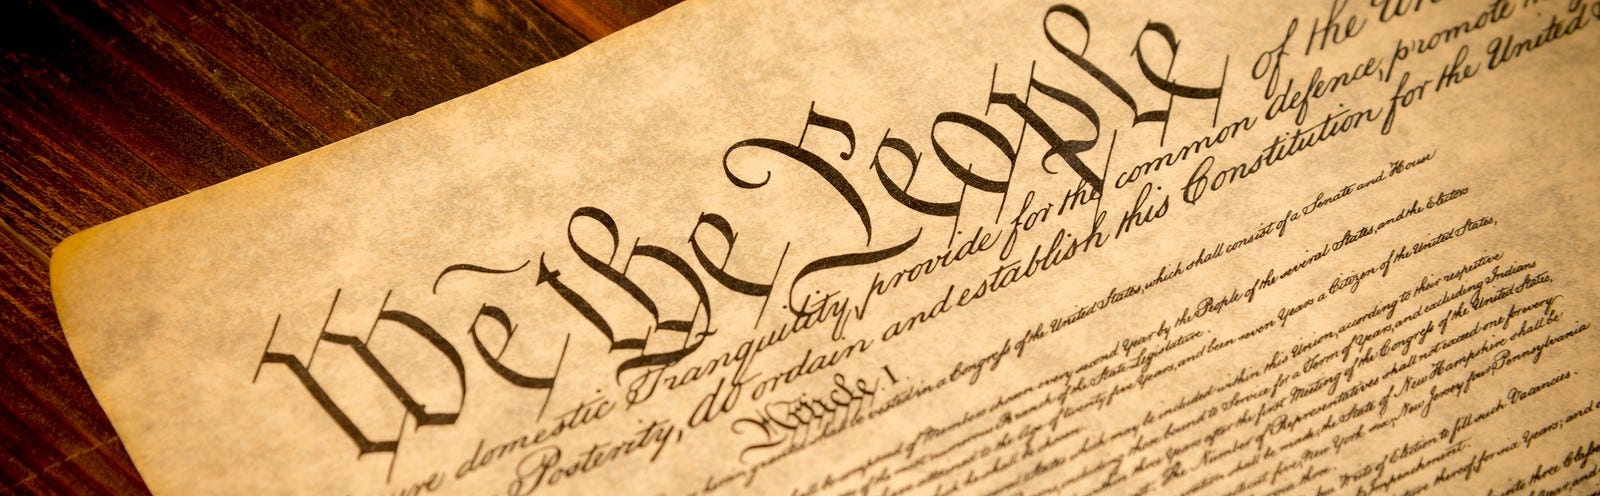 We the People of the Un
ure domestic Tranquility, provide for the common defence, promote
Posterity, do ordain and establish this Constitution for the United
Article 1
shall be vested in a Congress of the United States, which shall consist of a Senate and House
composed of Members chosen every second Year by the People of the several States, and the Electors
of the most numerous Branch of the State Legislature.
attained to the Age of twenty five Years, and been seven Years a Citizen of the United States,
shall be chosen.
States which may be included within this Union, according to their respective
including those bound to Service for a Term of Years, and excluding Indians
within three Years after the first Meeting of the Congress of the United States,
The Number of Representatives shall not exceed one for every
shall be made, the State of New Hampshire shall be
New York six, New Jersey four, Pennsylvania
Writs of Election to fill such Vacancies.
Impeachment.
thereof, for six Years; and